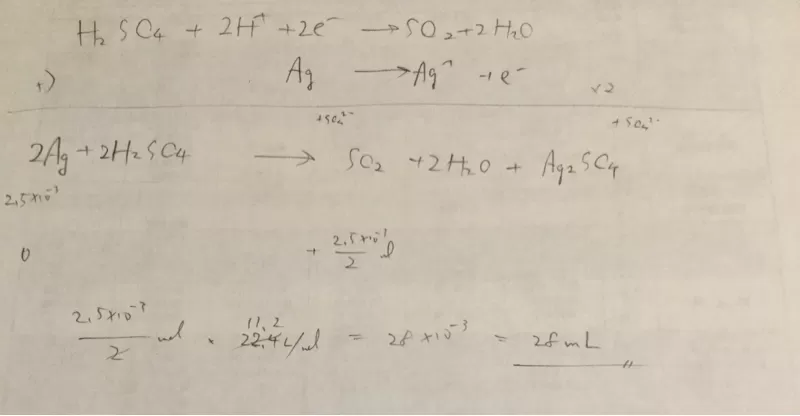 H₂SO₄ + 2H⁺ + 2e⁻ → SO₂ + 2H₂O
+) Ag → Ag⁺ + e⁻ ×2
+SO₄²⁻ +SO₄²⁻
2Ag + 2H₂SO₄ → SO₂ + 2H₂O + Ag₂SO₄
2.5×10⁻³
0 + 2.5×10⁻³/2 mol
2.5×10⁻³/2 mol × 22.4 L/mol = 28×10⁻³ = 28 mL
11.2